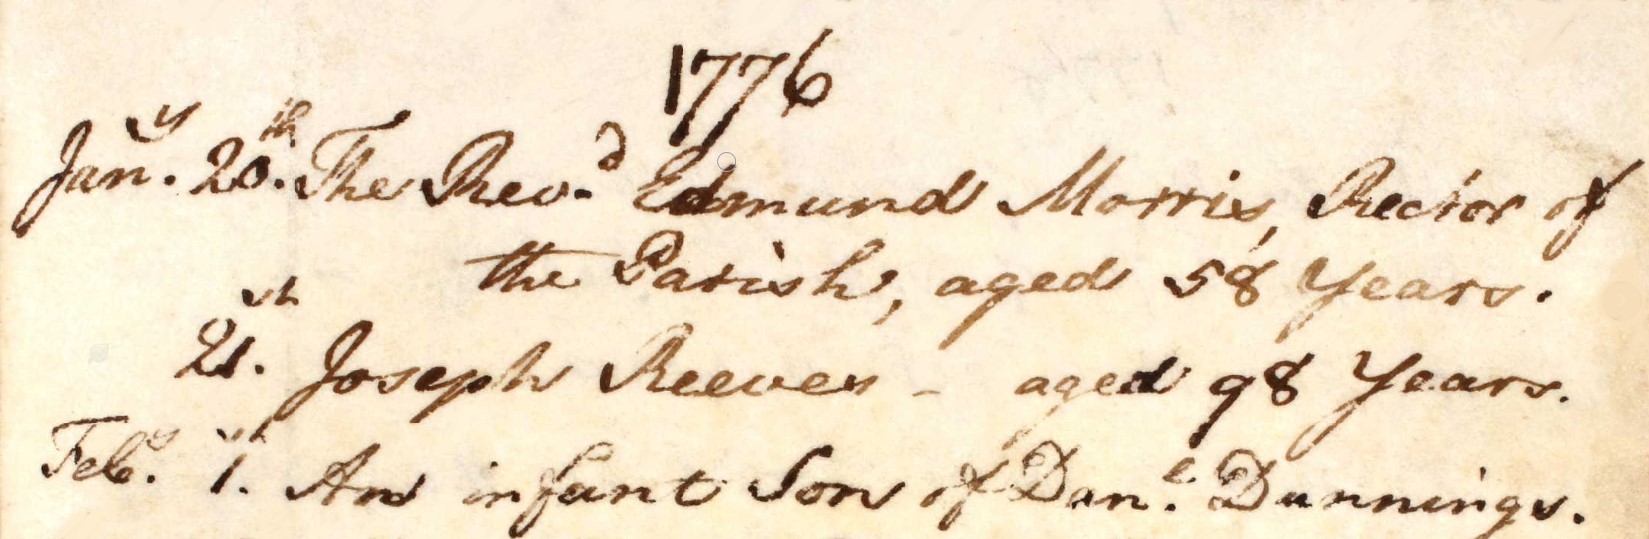 1776
Jany. 20th. The Revd. Edmund Morris, Rector of
the Parish, aged 58 Years.
21st. Joseph Reeves - aged 98 Years.
Feby. 1st. An infant Son of Danl. Dunnings.